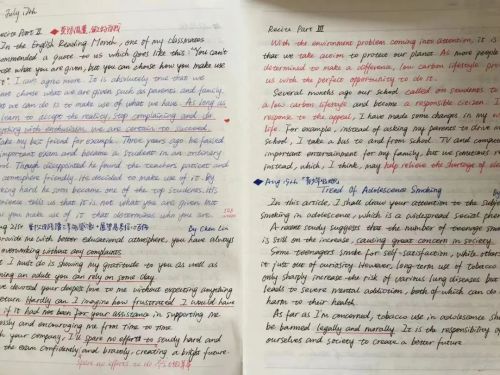 July 17th
Recite Part II
In the English Reading Month, one of my classmates
commended a quote to us which goes like this: "You can't
ose what you are given, but you can choose how you make use
it." I am agree more. It is absolutely true that we
not choose what we are given such as parents and family,
at we can do is to make use of what we have. As long as
learn to accept the reality, stop complaining and do
ything with enthusiasm, we are certain to succeed.
Take my best friend for example. Three years ago he failed
important exam and became a student in an ordinary
ool. Though disappointed he found the teachers patient and
atmosphere friendly. He decided to make use of it. By
king hard he soon became one of the top students. His
erience tells us that it is not what you are given but
you make use of it that determines who you are.
Aug 21st
By Chen Lin
rovide me with better educational atmosphere, you have always
overworking without any complaints.
t I must do is showing my gratitude to you as well as
ming an adult you can rely on some day.
ve devoted your deepest love to me without expecting anything
eturn. Hardly can I imagine how frustrated I would have
if it had not been for your assistance in supporting me
lessly and encouraging me from time to time.
th your company, I'll spare no efforts to study hard and
the exam confidently and bravely, creating a bright future.
spare no efforts to do
Recite Part III
With the environment problem coming into attention, It is
that we take action to protect our planet. As more people
determined to make a difference, low carbon lifestyle pro
us with the perfect opportunity to do it.
Several months ago our school called on students to
a low-carbon lifestyle and become a responsible citizen. I
response to the appeal, I have made some changes in my
life. For example, instead of asking my parents to drive m
school, I take a bus to and from school. TV and compute
important entertainment for my family, but we sometimes
instead, which, I think, may help relieve the shortage of elec
Aug 19th
Trend Of Adolescence Smoking
In this article I shall draw your attention to the subje
smoking in adolescence, which is a widespread social pheno
A recent study suggests that the number of teenage smok
is still on the increase, causing great concern in society.
Some teenagers smoke for self-satisfaction, while others
it just out of curiosity. However, long-term use of tobacco
only sharply increase the risk of various lung diseases but
leads to severe mental addiction, both of which can do
harm to their health.
As far as I'm concerned, tobacco use in adolescence sho
be banned legally and morally. It is the responsibility of
ourselves and society to create a better future.